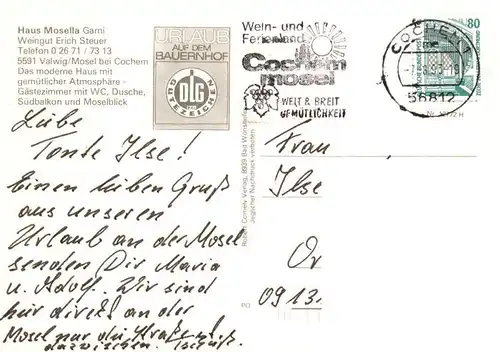 Haus Mosella Garni
Weingut Erich Steuer
Telefon 0 26 71 / 73 13
5591 Valwig/Mosel bei Cochem
Das moderne Haus mit
gemütlicher Atmosphäre -
Gästezimmer mit WC, Dusche,
Südbalkon und Moselblick
URLAUB
AUF DEM
BAUERNHOF
DLG
GÜTEZEICHEN
Wein- und
Ferienland
Cochem
mosel
WELT & BREIT
GEMÜTLICHKEIT
COCHEM 1
56812
80
Robert Cornely Verlag, 8939 Bad Wörishofen
Jeglicher Nachdruck verboten
Liebe
Tante Ilse!
Einen lieben Gruß
aus unserem
Urlaub an der Mosel
senden Dir Maria
u. Adolf. Wir sind
hir direkt an der
Mosel nur die Straße ist
dazwischen. Tschüß
Frau
Ilse
Or
0913